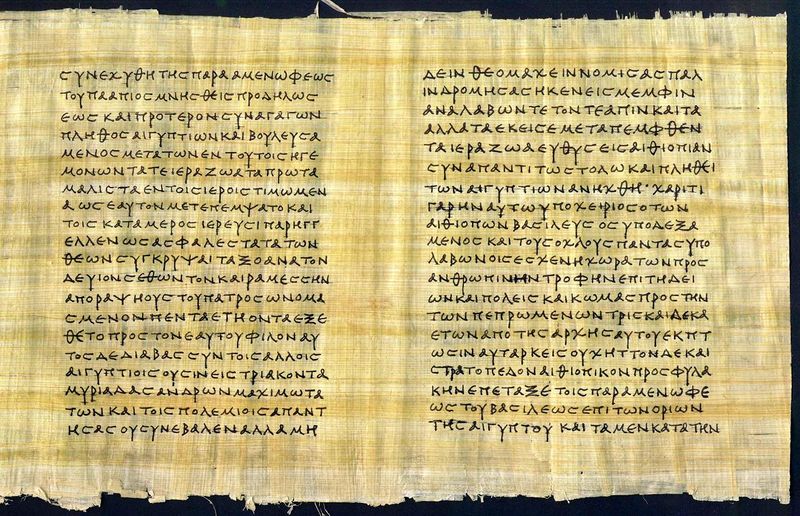 ϹΥΝΕΧΥΘΗΤΗϹΠΑΡΑΑΜΕΝΩΦΕΩϹ
ΤΟΥΠΑΑΠΙΟϹΜΝΗϹΘΕΙϹΠΡΟΔΗΛΩϹ
ΕΩϹΚΑΙΠΡΟΤΕΡΟΝϹΥΝΑΓΑΓΩΝ
ΠΛΗΘΟϹΑΙΓΥΠΤΙΩΝΚΑΙΒΟΥΛΕΥϹΑ
ΜΕΝΟϹΜΕΤΑΤΩΝΕΝΤΟΥΤΟΙϹΗΓΕ
ΜΟΝΩΝΤΑΤΕΙΕΡΑΖΩΑΤΑΠΡΩΤΑ
ΜΑΛΙϹΤΑΕΝΤΟΙϹΙΕΡΟΙϹΤΙΜΩΜΕΝ
ΑΩϹΕΑΥΤΟΝΜΕΤΕΠΕΜΨΑΤΟΚΑΙ
ΤΟΙϹΚΑΤΑΜΕΡΟϹΙΕΡΕΥϹΙΠΑΡΗΓΓ
ΕΛΛΕΝΩϹΑϹΦΑΛΕϹΤΑΤΑΤΩΝ
ΘΕΩΝϹΥΓΚΡΥΨΑΙΤΑΞΟΑΝΑΤΟΝ
ΔΕΥΙΟΝϹΕΘΩΝΤΟΝΚΑΙΡΑΜΕϹϹΗΝ
ΑΠΟΡΑΨΗΟΥϹΤΟΥΠΑΤΡΟϹΩΝΟΜΑ
ϹΜΕΝΟΝΠΕΝΤΑΕΤΗΟΝΤΑΕΞΕ
ΘΕΤΟΠΡΟϹΤΟΝΕΑΥΤΟΥΦΙΛΟΝΑΥ
ΤΟϹΔΕΔΙΑΒΑϹϹΥΝΤΟΙϹΑΛΛΟΙϹ
ΑΙΓΥΠΤΙΟΙϹΟΥϹΙΝΕΙϹΤΡΙΑΚΟΝΤΑ
ΜΥΡΙΑΔΑϹΑΝΔΡΩΝΜΑΧΙΜΩΤΑ
ΤΩΝΚΑΙΤΟΙϹΠΟΛΕΜΙΟΙϹΑΠΑΝΤ
ΗϹΑϹΟΥϹΥΝΕΒΑΛΕΝΑΛΛΑΜΗ
ΔΕΙΝΘΕΟΜΑΧΕΙΝΝΟΜΙϹΑϹΠΑΛ
ΙΝΔΡΟΜΗϹΑϹΗΚΕΝΕΙϹΜΕΜΦΙΝ
ΑΝΑΛΑΒΩΝΤΕΤΟΝΤΕΑΠΙΝΚΑΙΤΑ
ΑΛΛΑΤΑΕΚΕΙϹΕΜΕΤΑΠΕΜΦΘΕΝ
ΤΑΙΕΡΑΖΩΑΕΥΘΥϹΕΙϹΑΙΘΙΟΠΙΑΝ
ϹΥΝΑΠΑΝΤΙΤΩϹΤΟΛΩΚΑΙΠΛΗΘΕΙ
ΤΩΝΑΙΓΥΠΤΙΩΝΑΝΗΧΘΗ·ΧΑΡΙΤΙ
ΓΑΡΗΝΑΥΤΩΥΠΟΧΕΙΡΙΟϹΟΤΩΝ
ΑΙΘΙΟΠΩΝΒΑϹΙΛΕΥϹΟϹΥΠΟΔΕΞΑ
ΜΕΝΟϹΚΑΙΤΟΥϹΟΧΛΟΥϹΠΑΝΤΑϹΥΠΟ
ΛΑΒΩΝΟΙϹΕϹΧΕΝΗΧΩΡΑΤΩΝΠΡΟϹ
ΑΝΘΡΩΠΙΝΗΝΤΡΟΦΗΝΕΠΙΤΗΔΕΙ
ΩΝΚΑΙΠΟΛΕΙϹΚΑΙΚΩΜΑϹΠΡΟϹΤΗΝ
ΤΩΝΠΕΠΡΩΜΕΝΩΝΤΡΙϹΚΑΙΔΕΚΑ
ΕΤΩΝΑΠΟΤΗϹΑΡΧΗϹΑΥΤΟΥΕΚΠΤ
ΩϹΙΝΑΥΤΑΡΚΕΙϹΟΥΧΗΤΤΟΝΔΕΚΑΙ
ϹΤΡΑΤΟΠΕΔΟΝΑΙΘΙΟΠΙΚΟΝΠΡΟϹΦΥΛΑ
ΚΗΝΕΠΕΤΑΞΕΤΟΙϹΠΑΡΑΜΕΝΩΦΕ
ΩϹΤΟΥΒΑϹΙΛΕΩϹΕΠΙΤΩΝΟΡΙΩΝ
ΤΗϹΑΙΓΥΠΤΟΥΚΑΙΤΑΜΕΝΚΑΤΑΤΗΝ